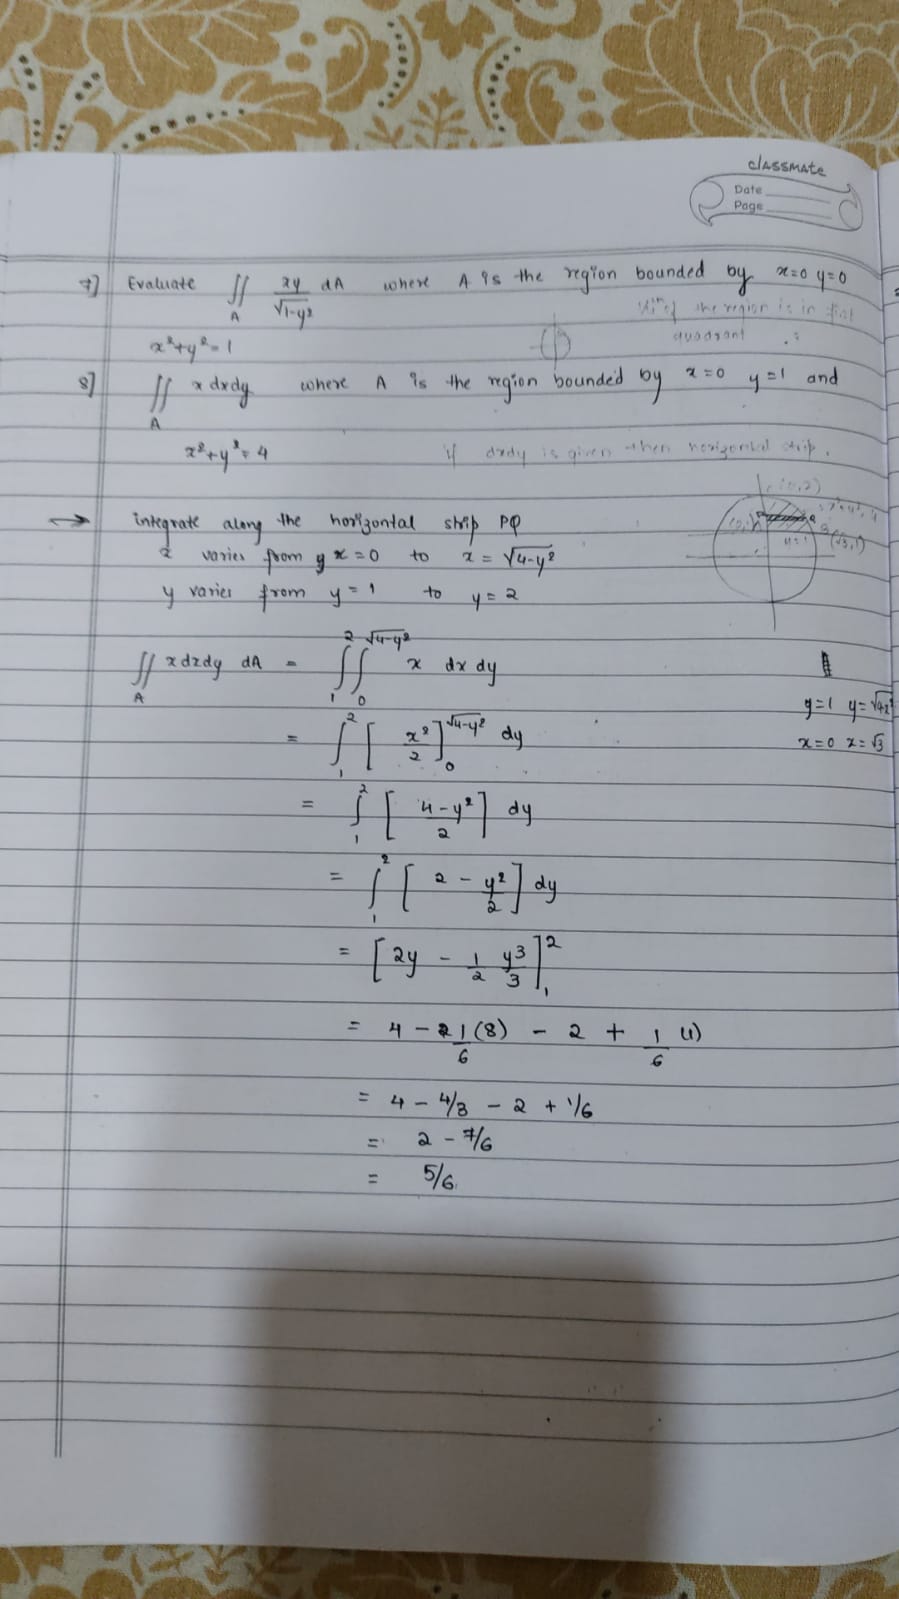 classmate
Date
Page
7] Evaluate ∬_A xy/√1-y² dA where A is the region bounded by x=0 y=0
x²+y²=1
the region is in first
quadrant
8] ∬_A x dxdy where A is the region bounded by x=0 y=1 and
x²+y²=4
if dxdy is given then horizontal strip.
(0,2)
→ integrate along the horizontal strip PQ
x varies from x=0 to x=√4-y²
y varies from y=1 to y=2
y=1
(√3,1)
∬_A x dxdy dA = ∫_1^2 ∫_0^√4-y² x dx dy
y=1 y=√4-x²
= ∫_1^2 [x²/2]_0^√4-y² dy
x=0 x=√3
= ∫_1^2 [4-y²/2] dy
= ∫_1^2 [2 - y²/2] dy
= [2y - 1/2 y³/3]_1^2
= 4 - 1/6 (8) - 2 + 1/6 (1)
= 4 - 4/3 - 2 + 1/6
= 2 - 7/6
= 5/6